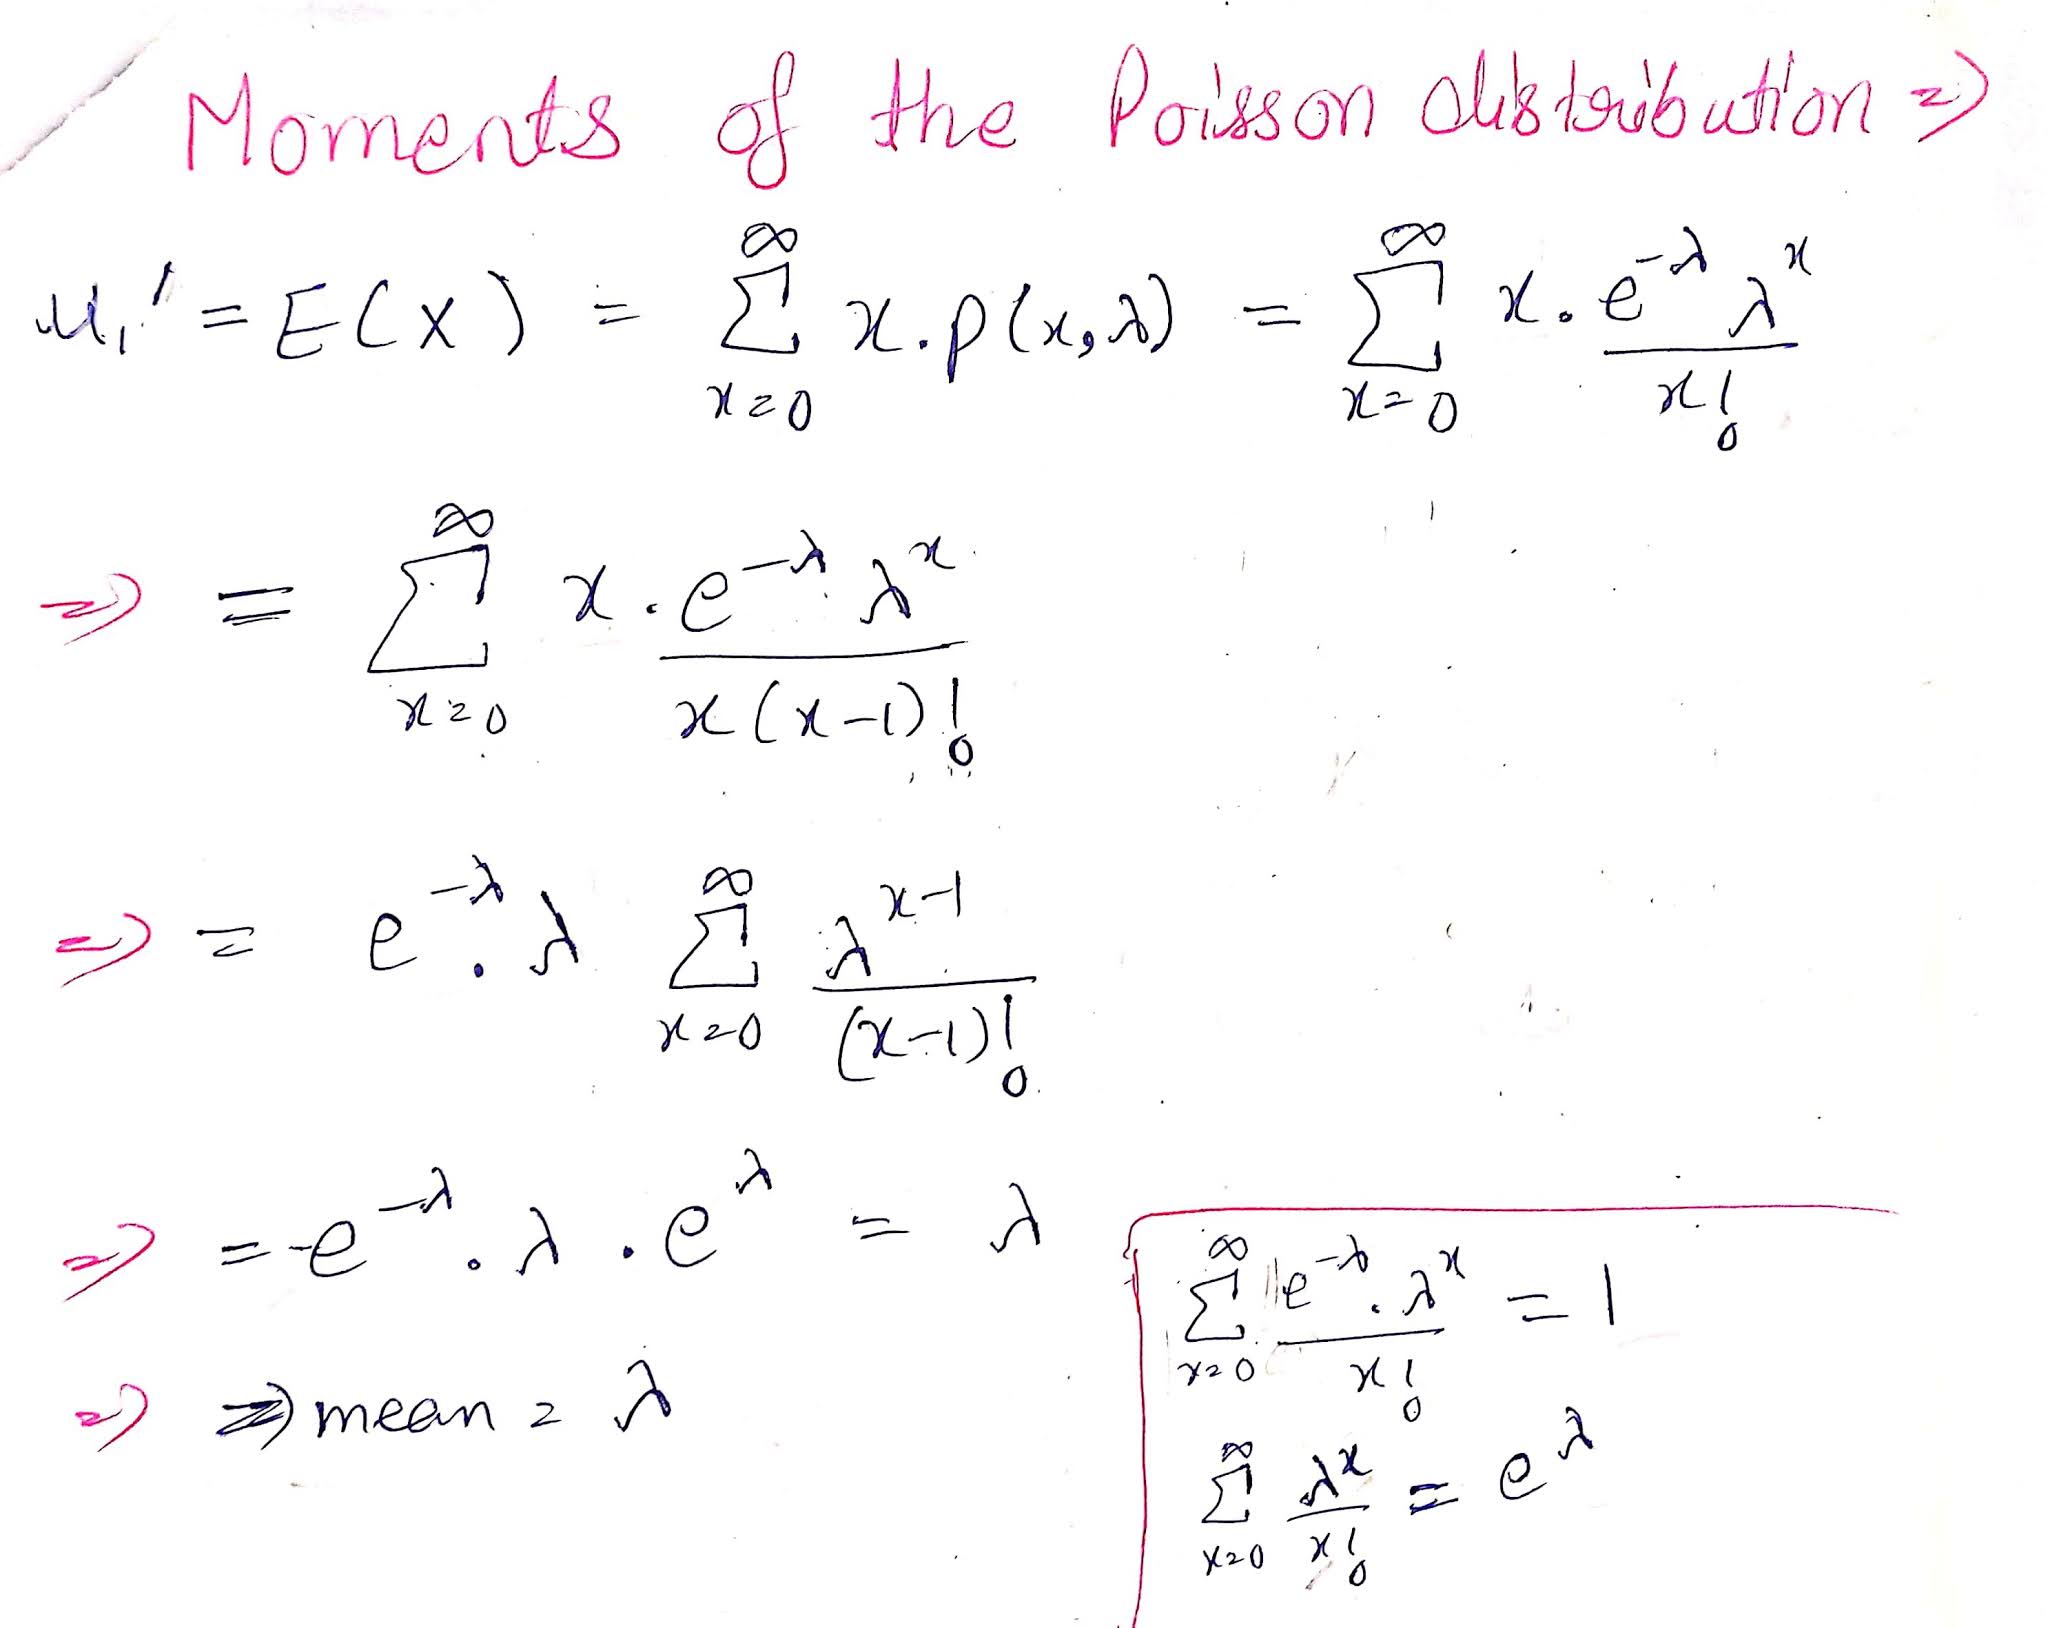 Moments of the Poisson distribution ⇒
μ₁′ = E(X) = ∑_{x=0}^{∞} x.p(x,λ) = ∑_{x=0}^{∞} x. e^{-λ} λ^x / x!
⇒ = ∑_{x=0}^{∞} x . e^{-λ} λ^x / x(x-1)!
⇒ = e^{-λ} . λ ∑_{x=0}^{∞} λ^{x-1} / (x-1)!
⇒ = e^{-λ} . λ . e^{λ} = λ
⇒ ⇒ mean = λ
∑_{x=0}^{∞} e^{-λ} . λ^x / x! = 1
∑_{x=0}^{∞} λ^x / x! = e^{λ}